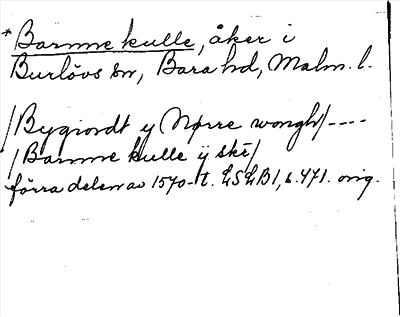 *Barnme kulle, åker i
Burlövs sn, Bara hd, Malm. l.
/Bygiordt y Nørre wongh/----
/Barnme kulle ÿ skĕ/
förra delen av 1570-t. LSLB1, s. 471. orig.